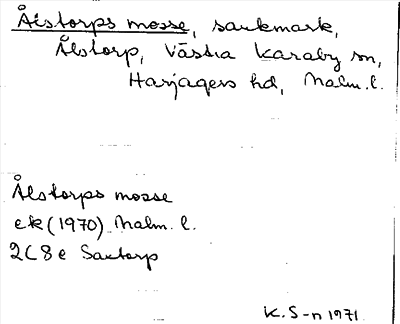 Ålstorps mosse, sankmark,
Ålstorp, Västra Karaby sn,
Harjagers hd, Malm. l.
Ålstorps mosse
ek (1970) Malm. l.
2C8e Saxtorp
K. S-n 1971